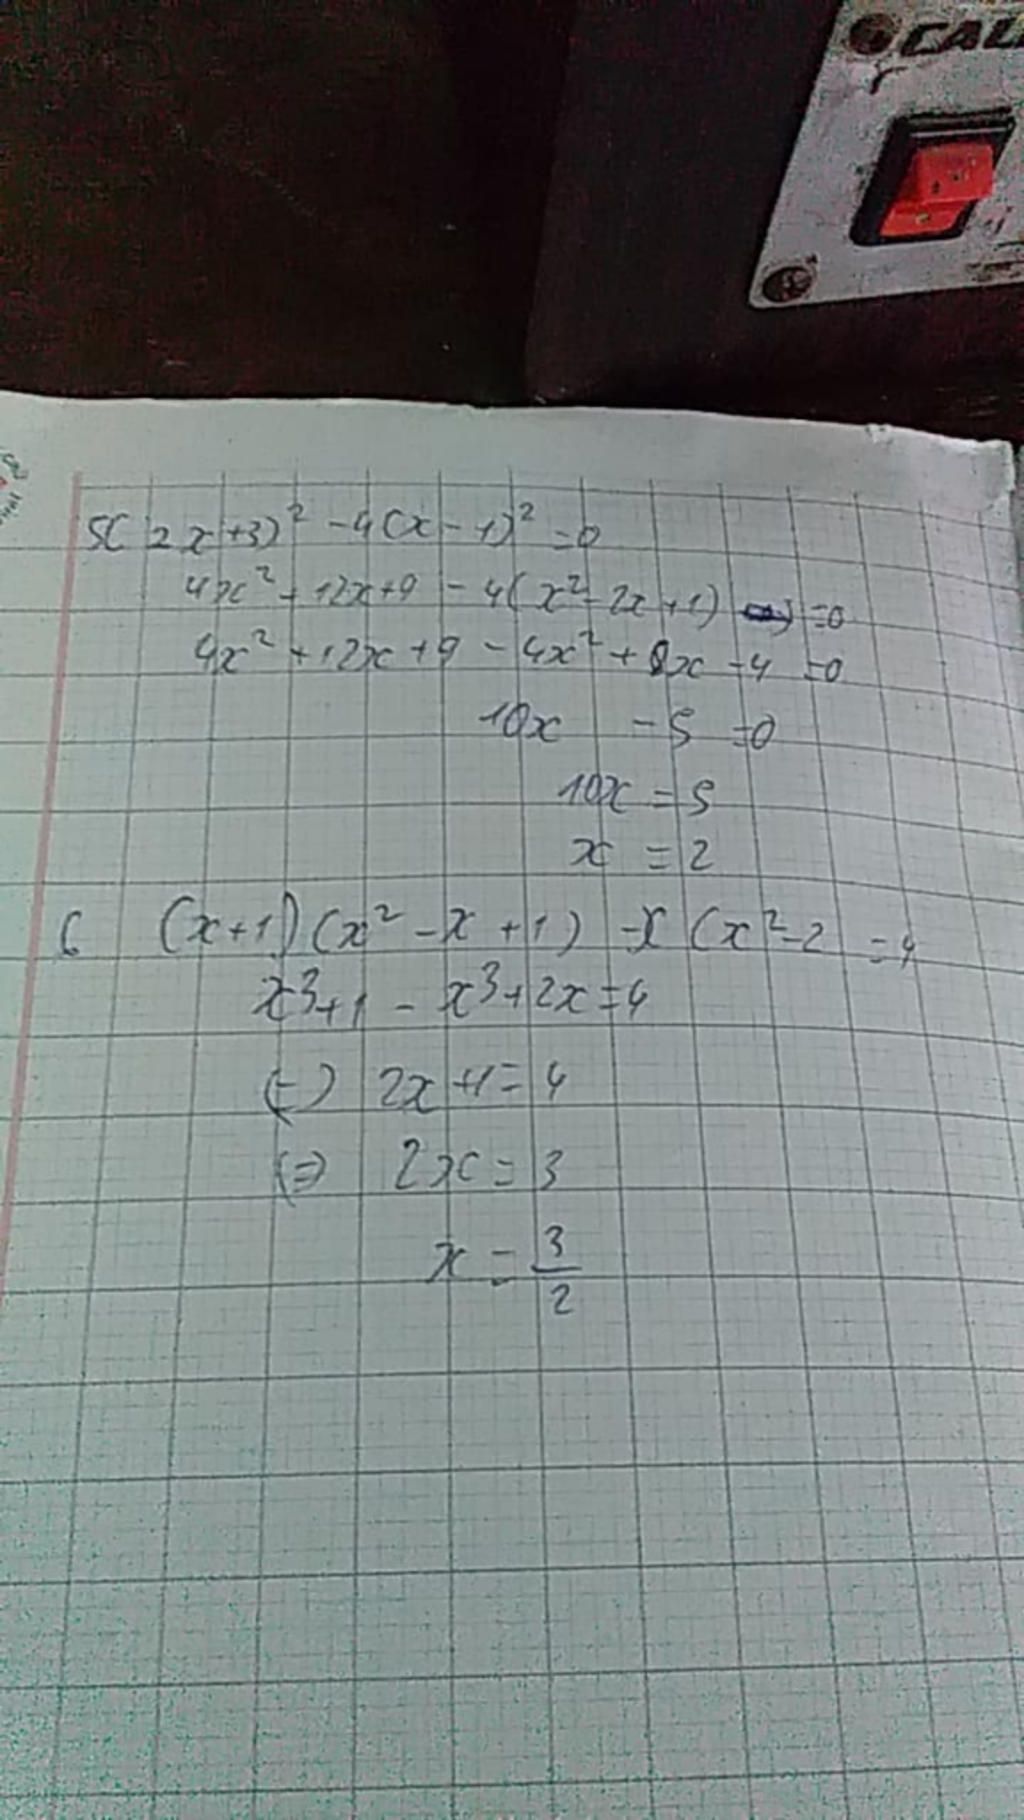 CAL
5( 2x+3)² -4(x-1)² =0
4x² +12x+9 -4(x²-2x+1) =0
4x² +12x+9 -4x² +8x -4 =0
10x -5 =0
10x = 5
x = 2
6 (x+1)(x² -x +1) -x (x²-2 =4
x³+1 - x³+2x=4
(=) 2x+1=4
(=) 2x=3
x = 3/2